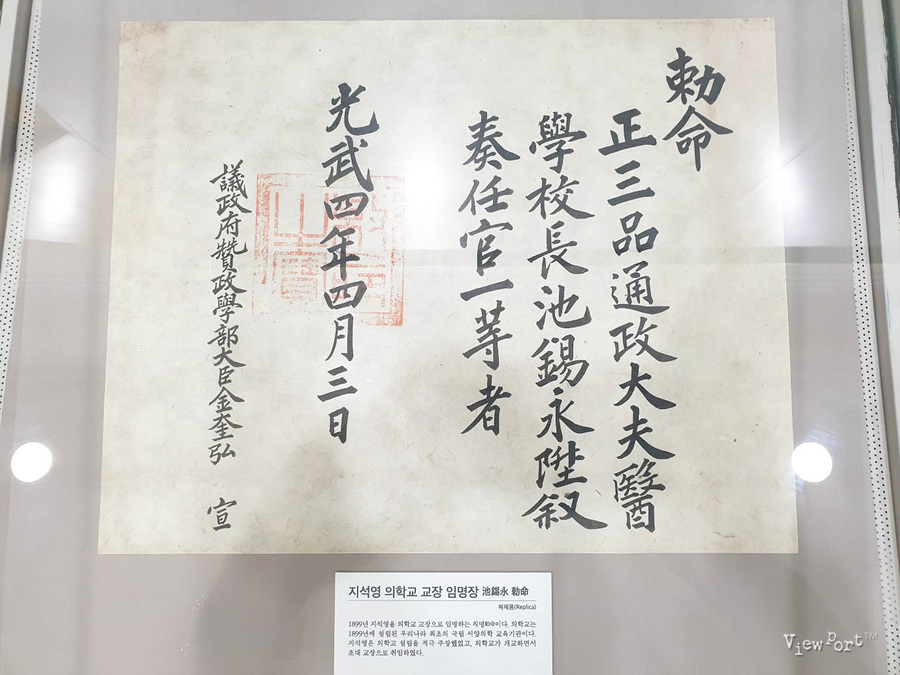 勅命
正三品通政大夫醫
學校長池錫永陞叙
奏任官一等者
光武四年四月三日
議政府贊政學部大臣金奎弘 宣
지석영 의학교 교장 임명장 池錫永 勅命
복제품(Replica)
1899년 지석영을 의학교 교장으로 임명하는 칙명勅命이다. 의학교는
1899년에 설립된 우리나라 최초의 국립 서양의학 교육기관이다.
지석영은 의학교 설립을 적극 주장했었고, 의학교가 개교하면서
초대 교장으로 취임하였다.
ViewPort™